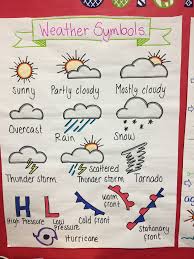 Weather Symbols
Sunny Partly cloudy Mostly cloudy
Overcast Rain Snow
Thunder storm scattered Thunder storm Tornado
H L
High Pressure Low Pressure Cold front warm front Stationary front
Hurricane